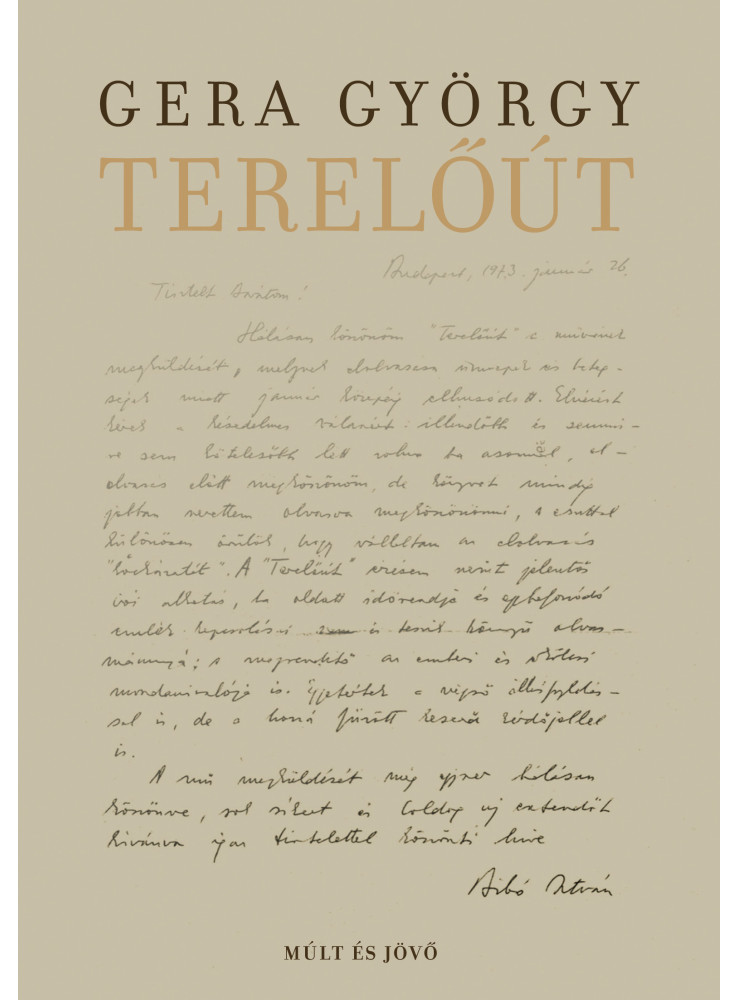 GERA GYÖRGY
TERELŐÚT
Budapest, 1973. január 26.
Tisztelt Barátom!
Hálásan köszönöm "Terelőút" c. művének
megküldését, melynek elolvasása ünnepek és beteg-
ségek miatt január közepéig elhúzódott. Elnézést
kérek a késedelmes válaszért: illendőbb és semmi-
re sem kötelezőbb lett volna ha azonnal, el-
olvasás előtt megköszönöm, de könyvet mindig
jobban szerettem olvasva megköszönni, s ezúttal
különösen örülök, hogy vállaltam az elolvasás
"kockázatát". A "Terelőút" érzésem szerint jelentős
írói alkotás, ha oldott időrendje és egybefonódó
emlék kapcsolásai is teszik könnyű olvas-
mánnyá; s megrendítő az emberi és erkölcsi
mondanivalója is. Egyetértek a végső állásfoglalás-
sal is, de a hozzá fűzött keserű kérdőjellel
is.
A mű megküldését még egyszer hálásan
köszönve, sok sikert és boldog új esztendőt
kívánva igaz tisztelettel köszönti híve
Bibó István
MÚLT ÉS JÖVŐ